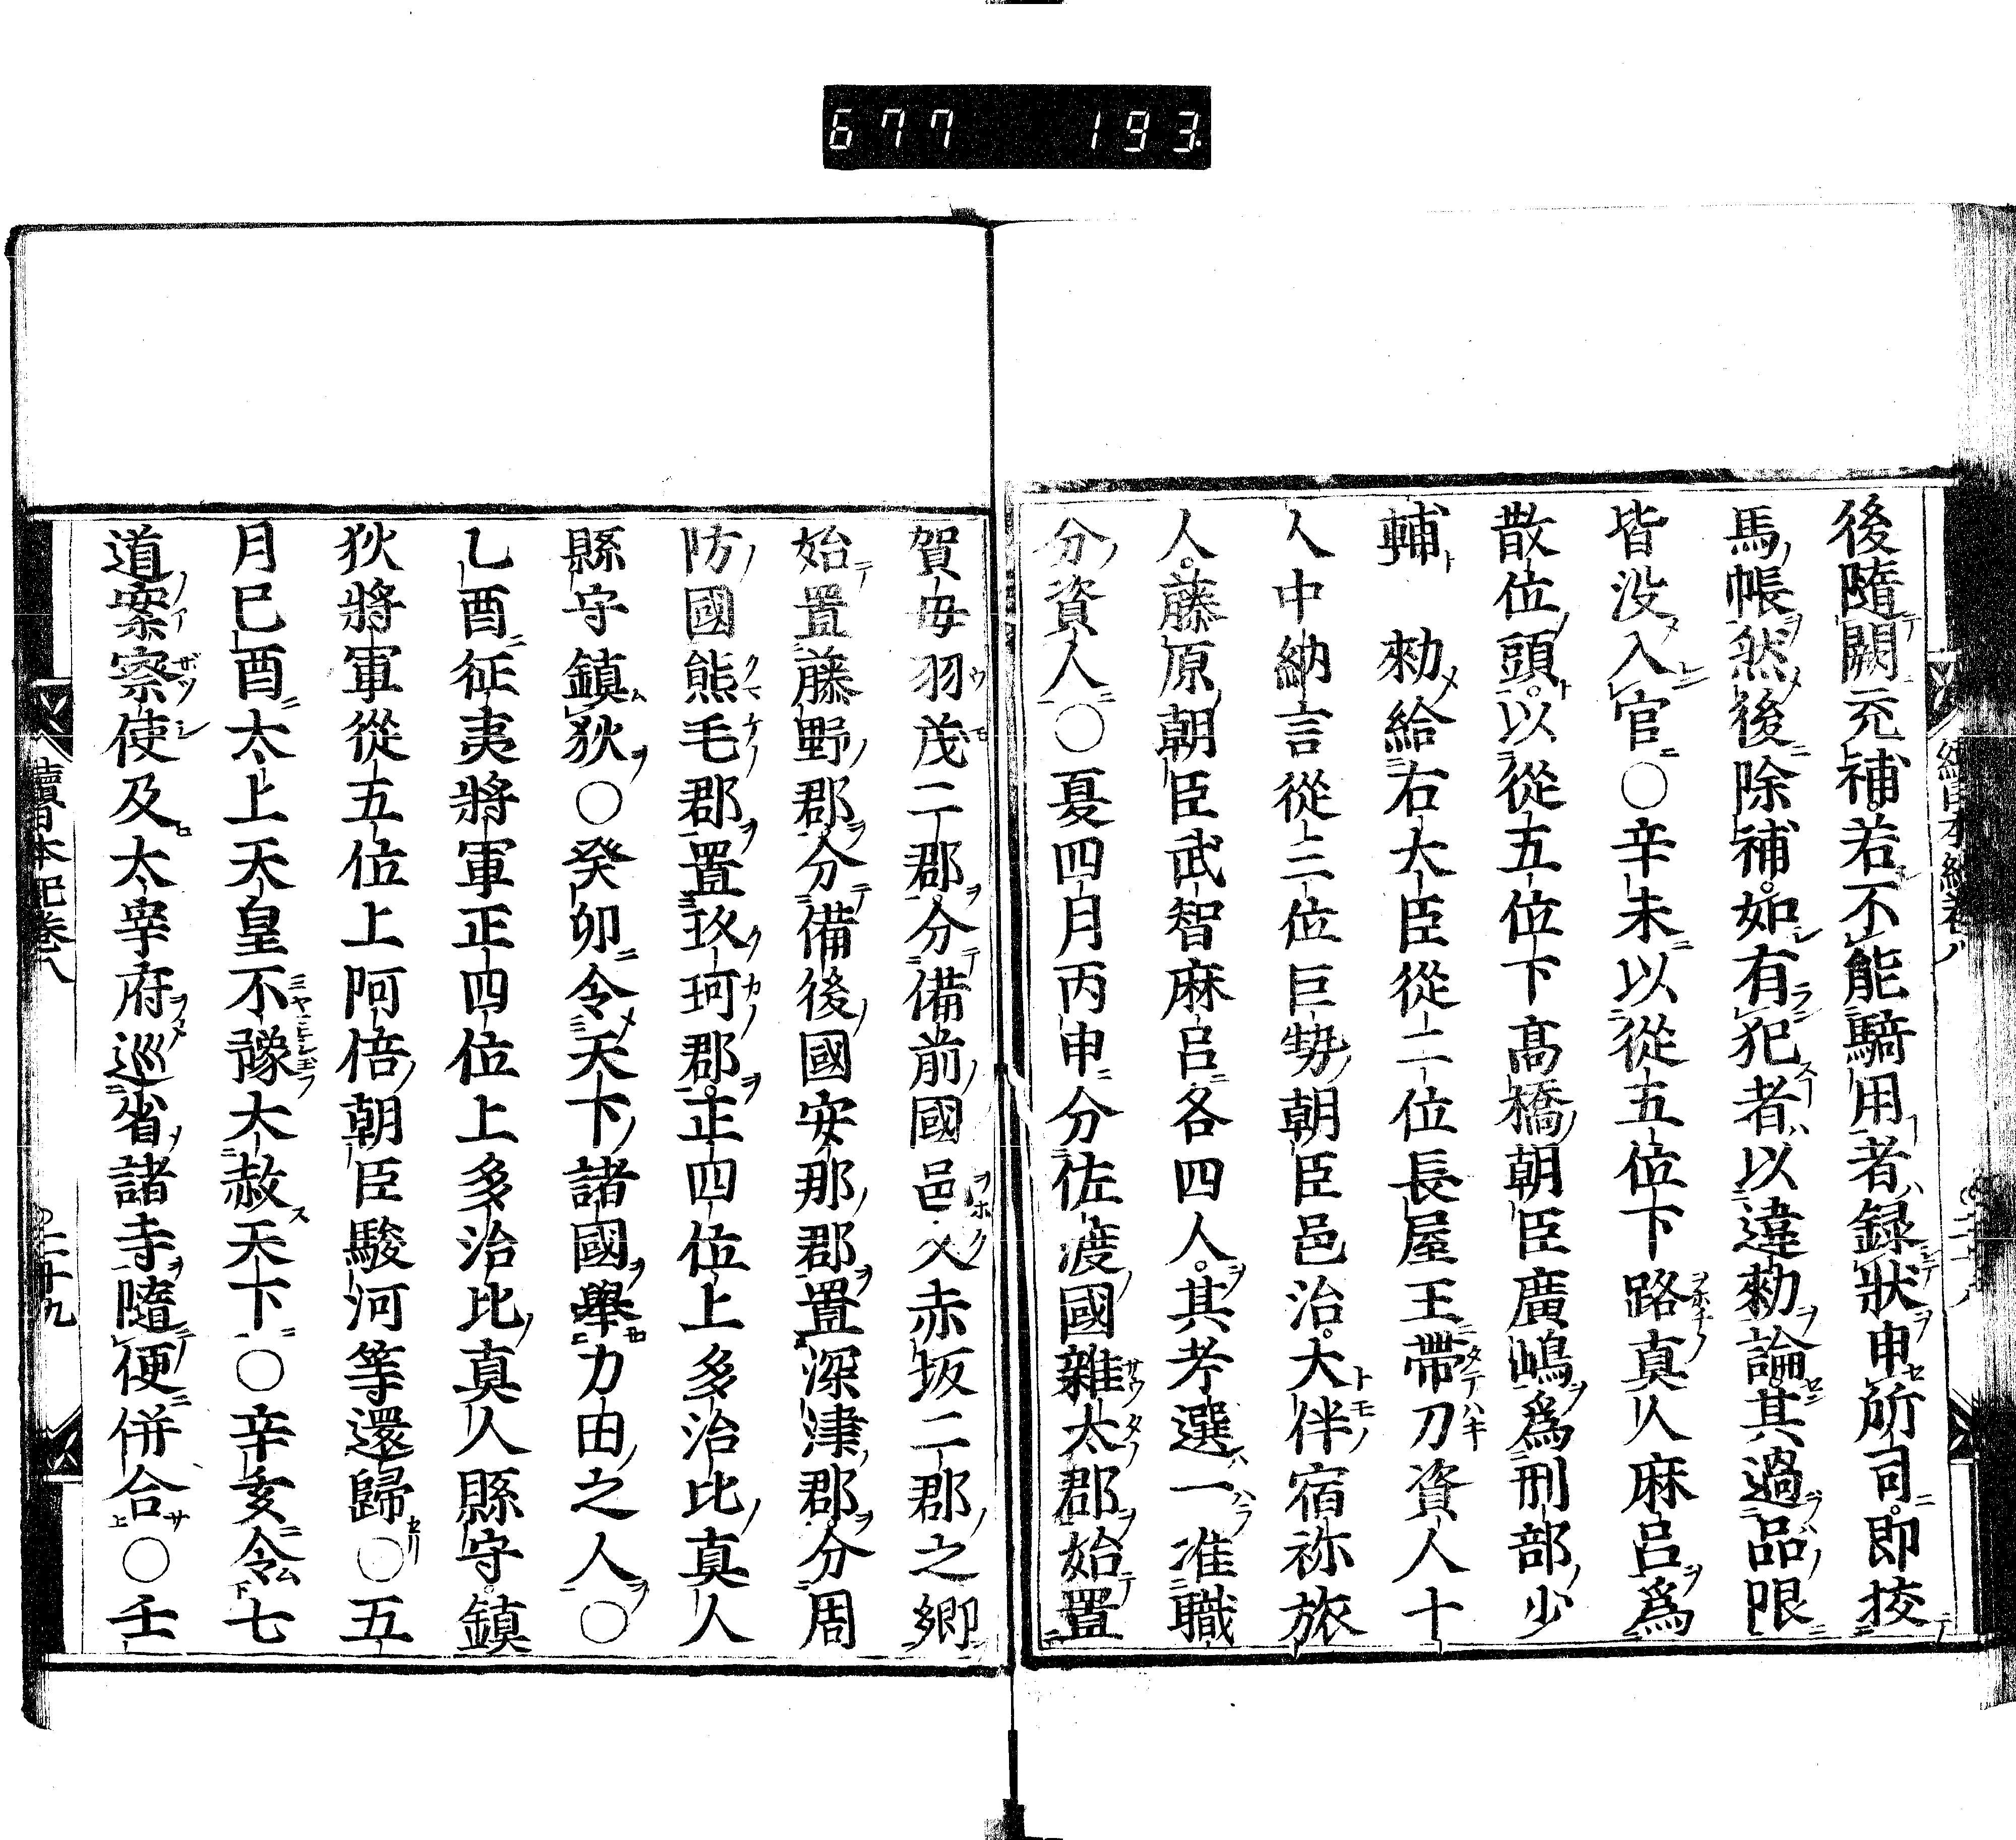 677 193
後隨闕充補若不能騎用者録狀申所司即挍
馬帳然後除補如有犯者以違勅論其過品限
皆没入官○辛未以從五位下路真人麻呂爲
散位頭以從五位下髙橋朝臣廣嶋爲刑部少
輔　勅給右大臣從二位長屋王帶刀資人十
人中納言從三位巨勢朝臣邑治大伴宿祢旅
人藤原朝臣武智麻呂各四人其考選一准職
分資人○夏四月丙申分佐渡國雜太郡始置
賀母羽茂二郡分備前國邑久赤坂二郡之郷
始置藤野郡分備後國安那郡置深津郡分周
防國熊毛郡置玖珂郡正四位上多治比真人
縣守鎮狄○癸卯令天下諸國舉力田之人○
乙酉征夷將軍正四位上多治比真人縣守鎮
狄將軍從五位上阿倍朝臣駿河等還歸○五
月巳酉太上天皇不豫大赦天下○辛亥令七
道案察使及太宰府巡省諸寺隨便併合○壬
續日本紀卷八
二十九